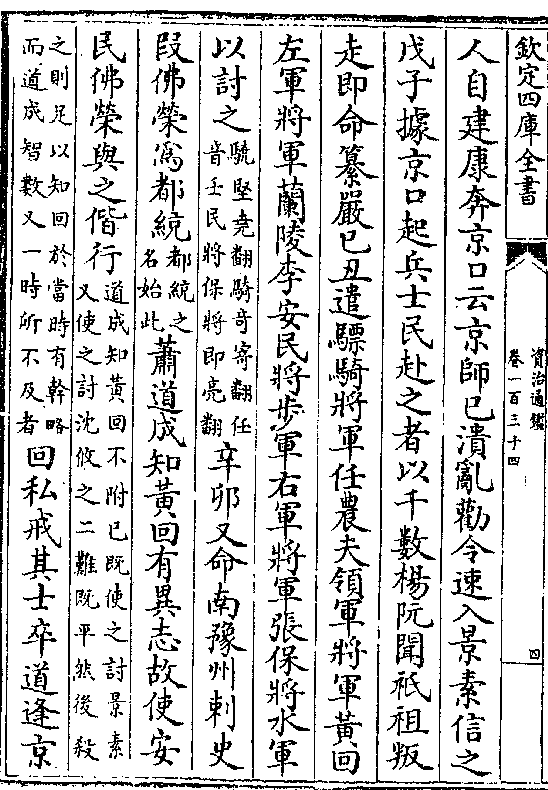 欽定四庫全書
資治通鑑
卷一百三十四
四
人自建康奔京口云京師已潰亂勸令速入景素信之
戊子據京口起兵士民赴之者以千數楊阮聞祗祖叛
走即命纂嚴已丑遣驃騎將軍任農夫領軍將軍黃回
左軍將軍蘭陵李安民將步軍右軍將軍張保將水軍
以討之驍堅堯翻騎奇寄翻任音壬民將保將即亮翻辛卯又命南豫州刺史
段佛榮為都統都統之名始此蕭道成知黃回有異志故使安
民佛榮與之偕行道成知黃回不附已既使之討景素又使之討沈攸之二難既平然後殺
之則足以知回於當時有幹略而道成智數又一時所不及者回私戒其士卒道逢京